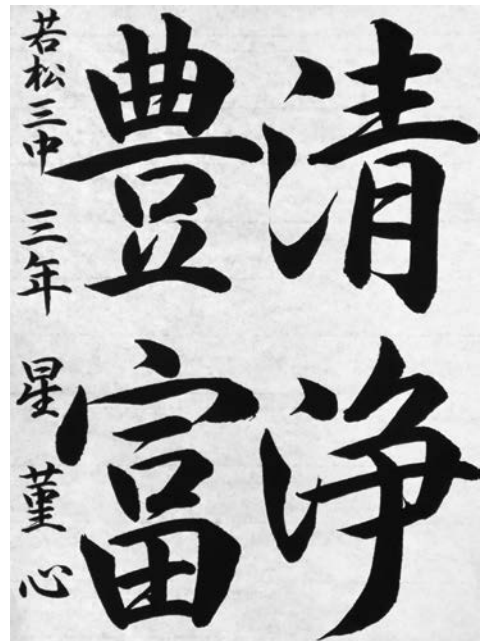 清浄
豊富
若松三中 三年 星 菫心